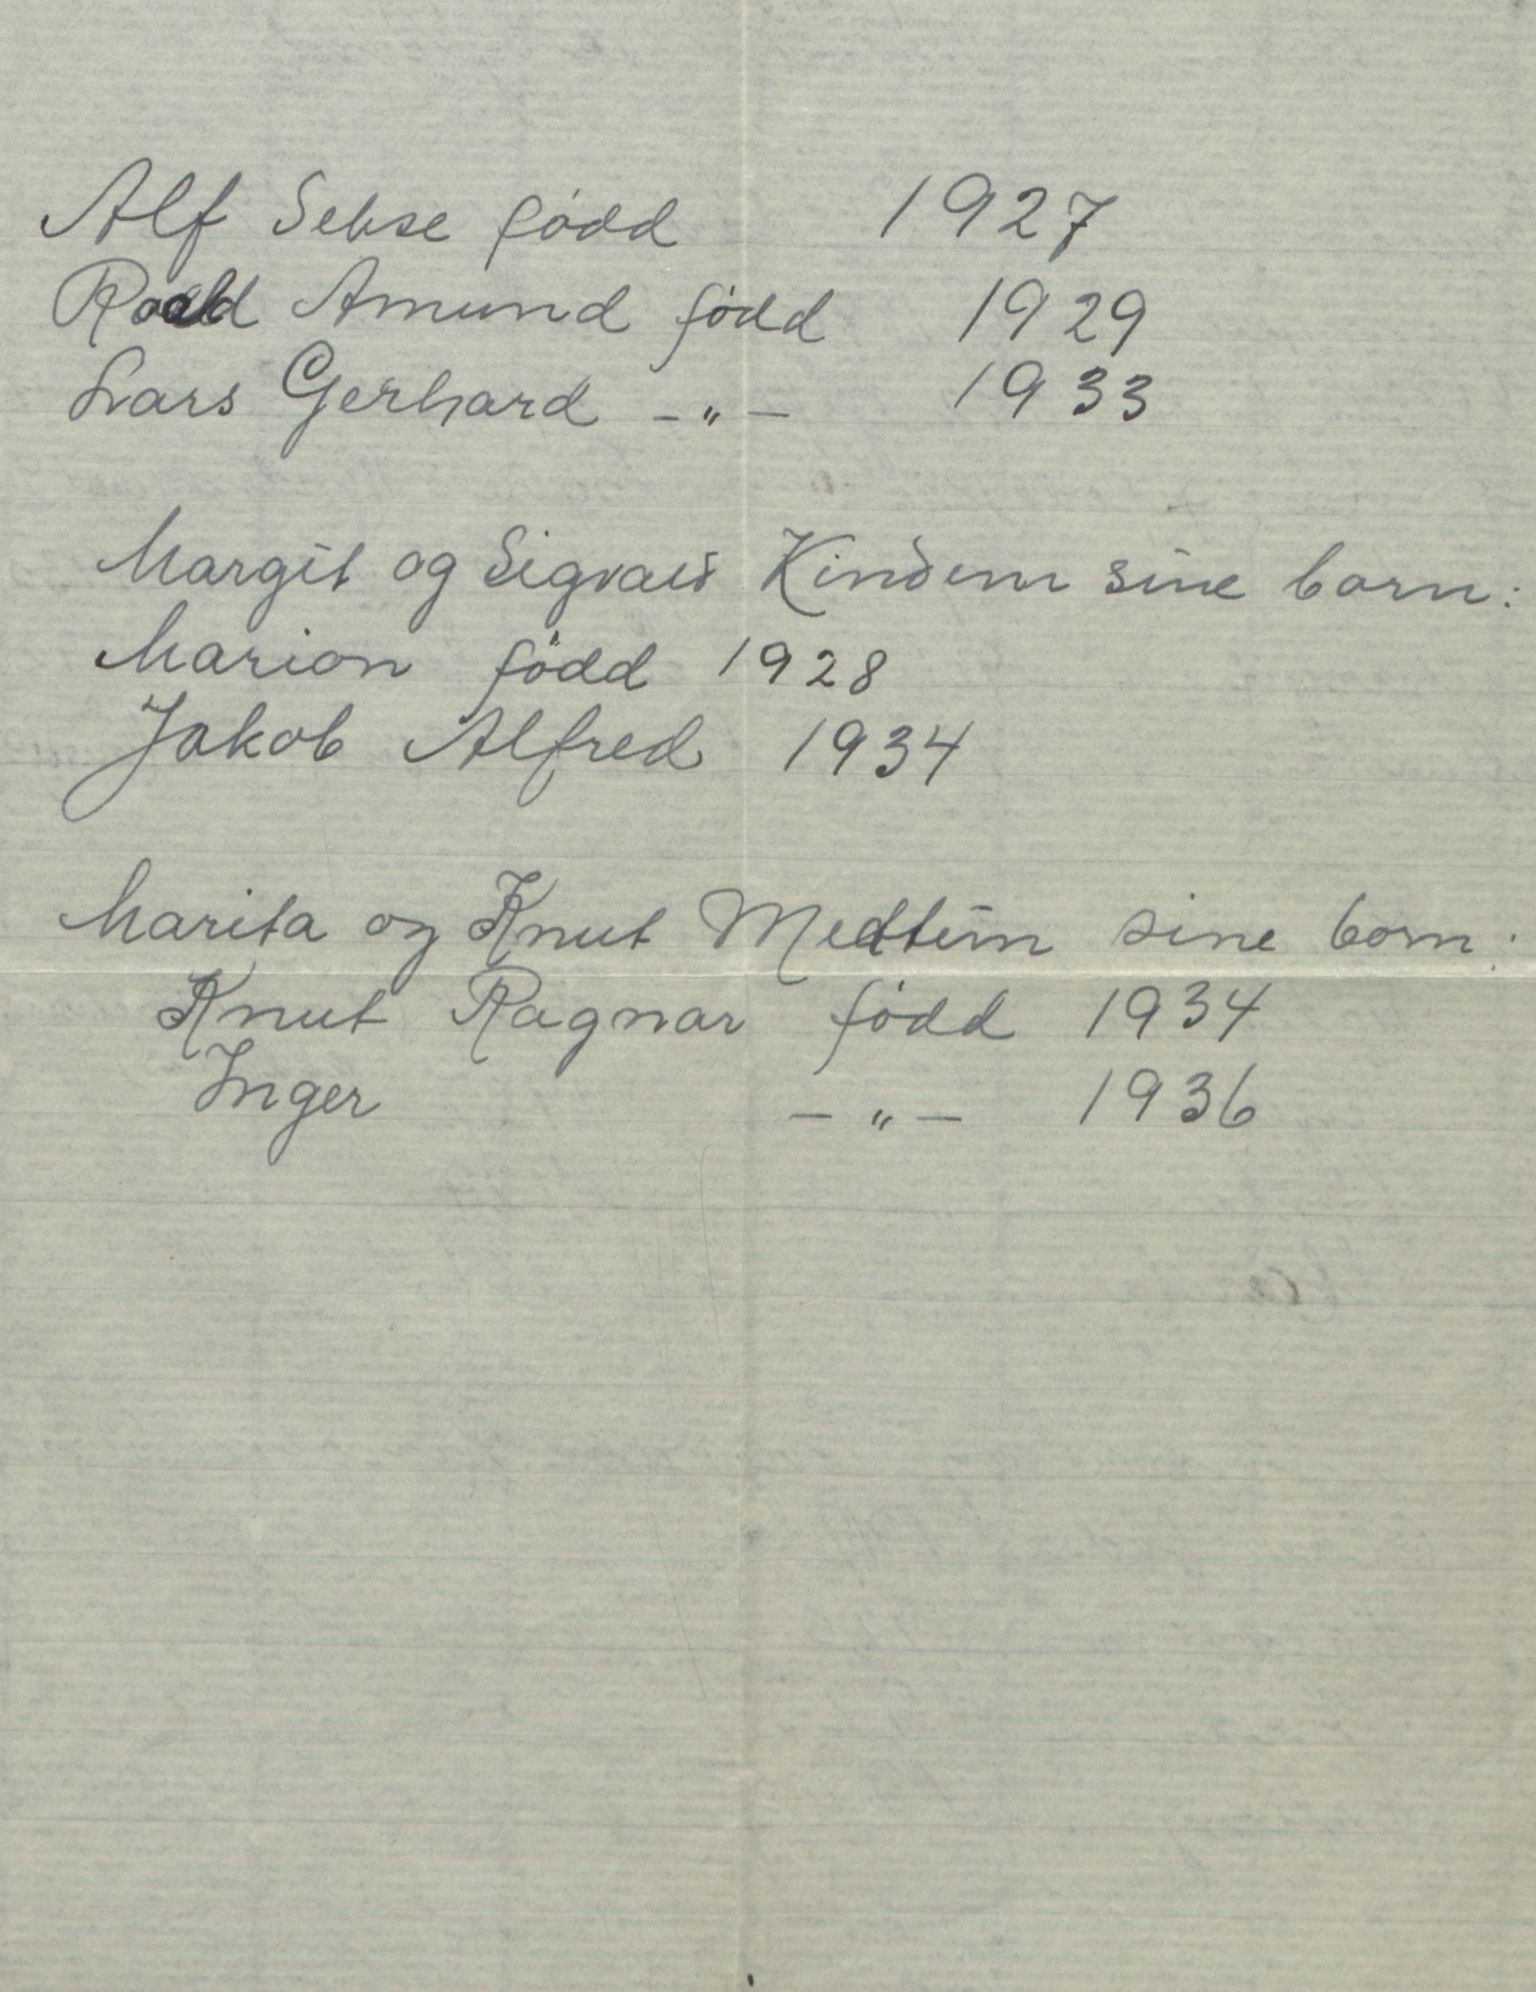 Alf Sekse född 1927
Roald Amund född 1929
Lars Gerhard - " - 1933
Margit og Sigvald Kindem sine born:
Marion född 1928
Jakob Alfred 1934
Marita og Knut Medtim sine born:
Knut Ragnar född 1934
Inger - " - 1936